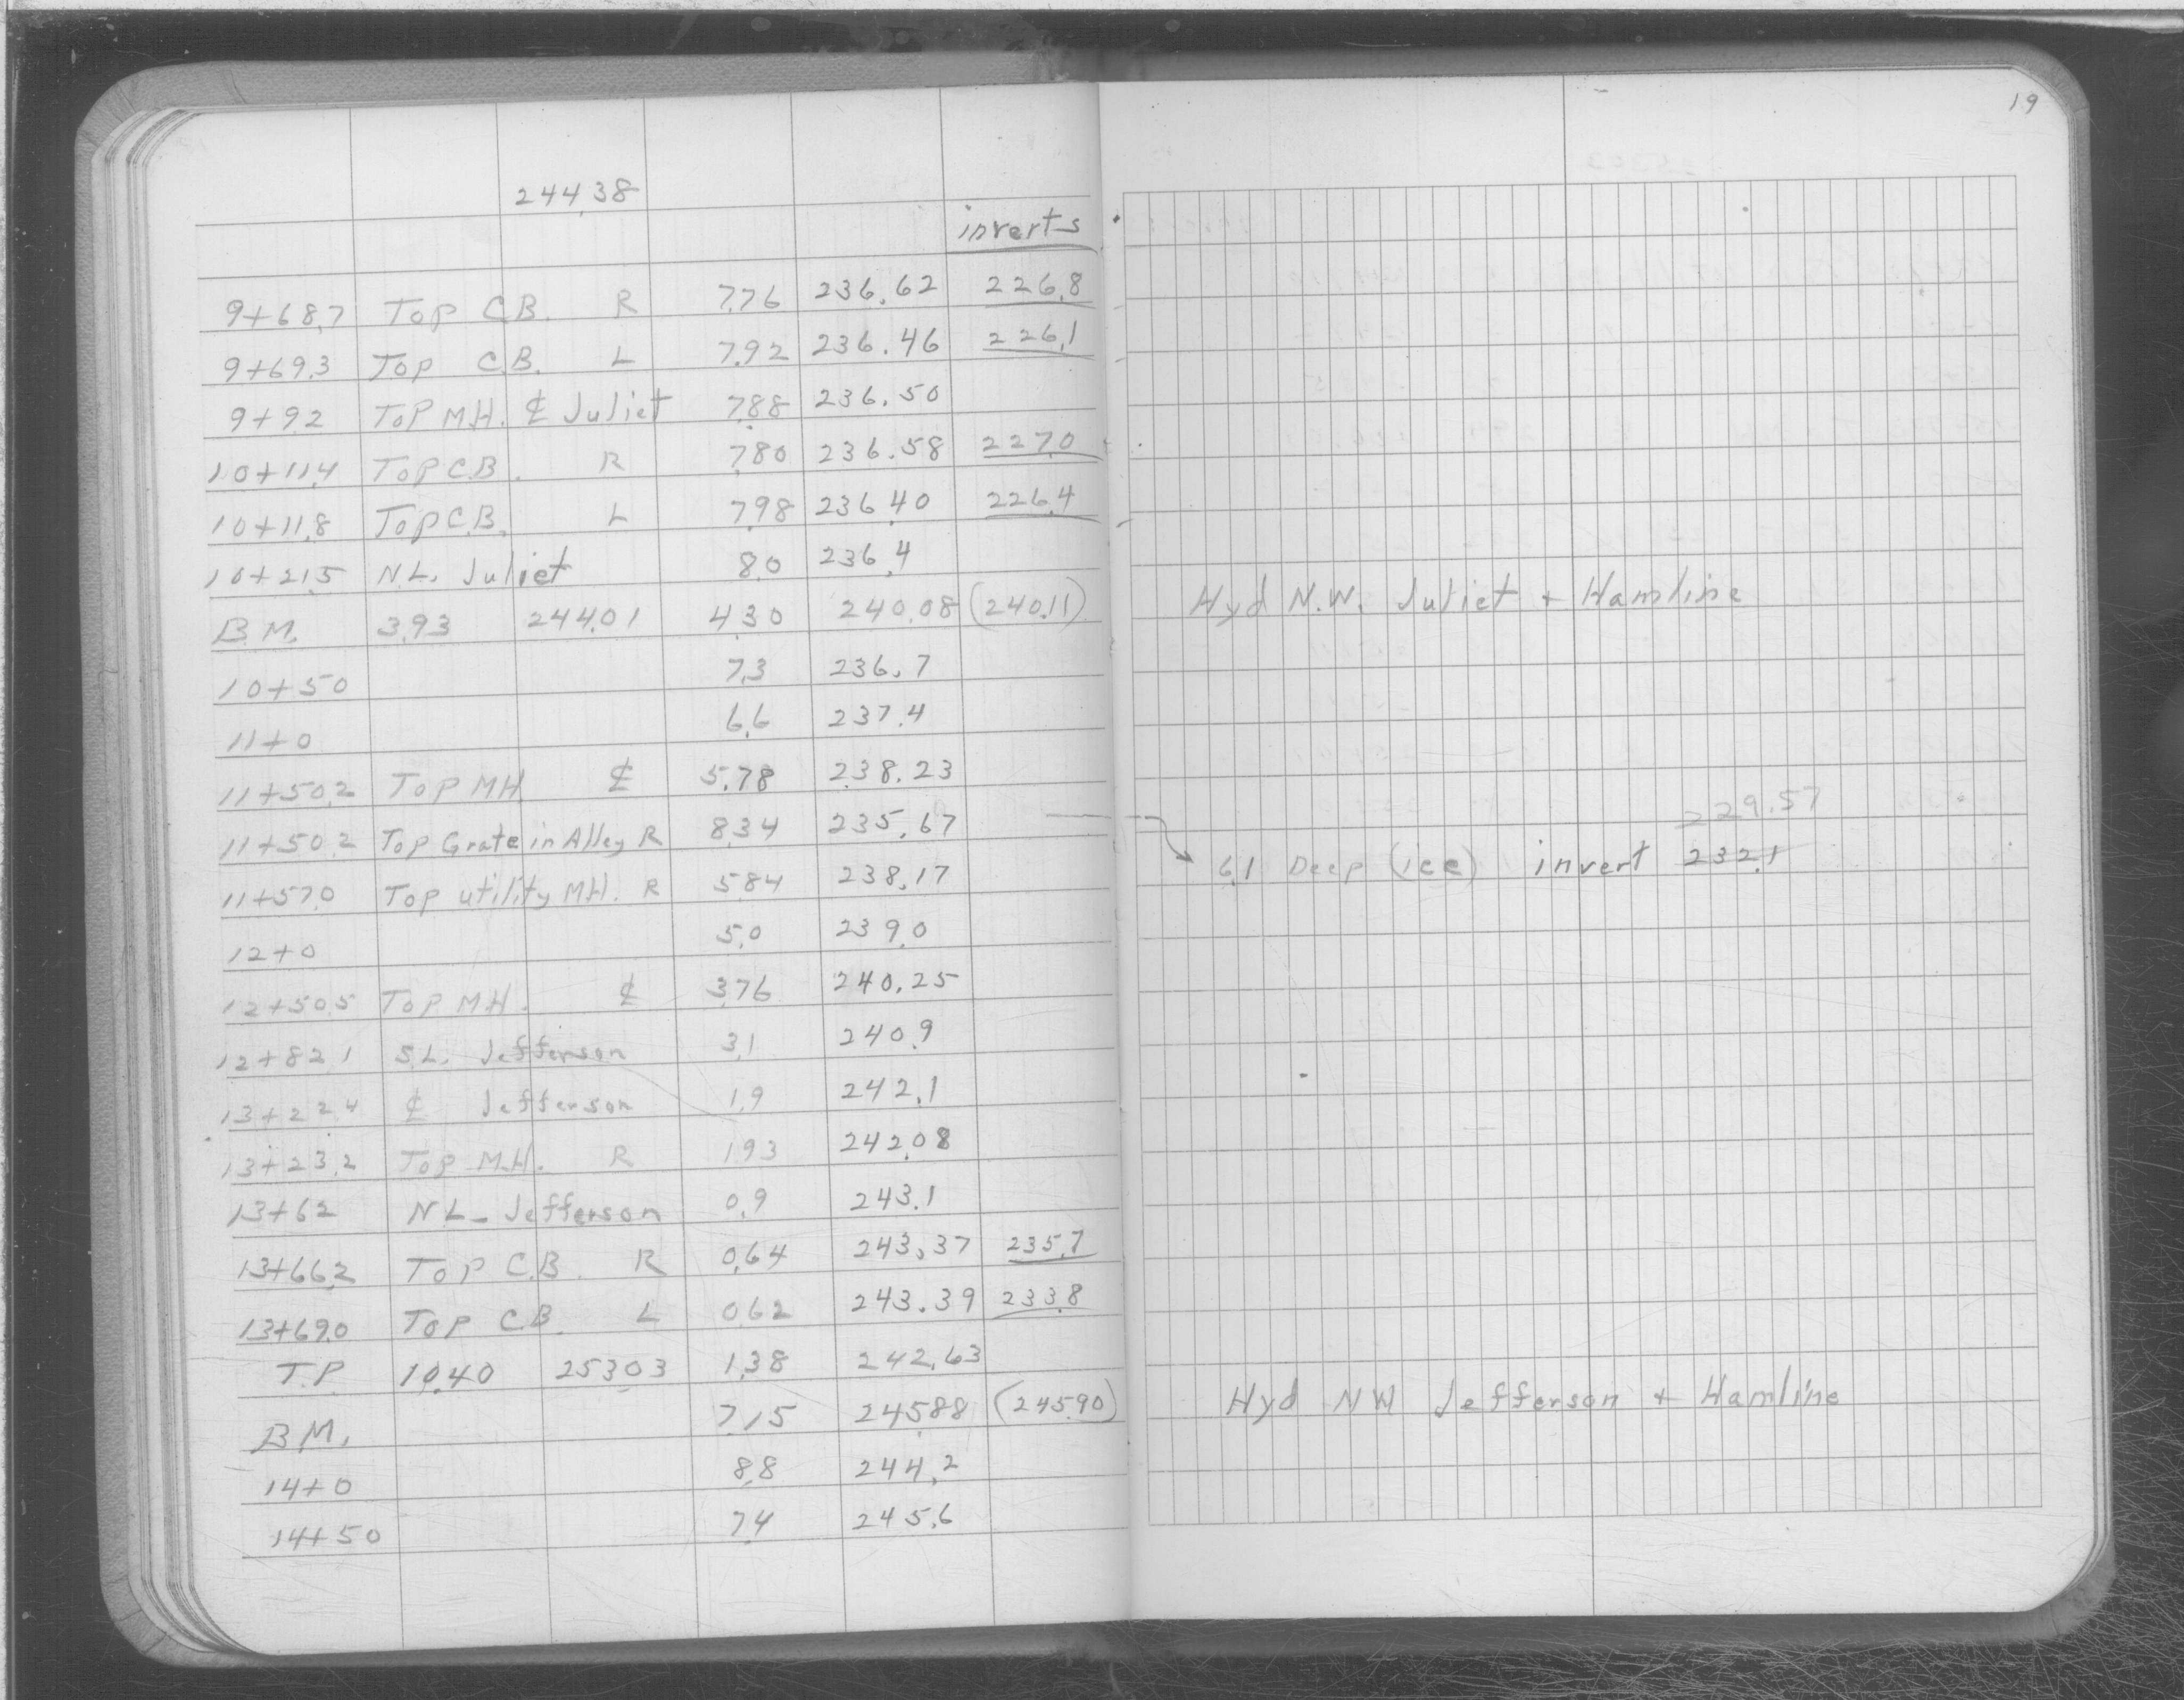 19
244.38
inverts
9+68.7 Top C.B. R 7.76 236.62 226.8
9+69.3 Top C.B. L 7.92 236.46 226.1
9+92 Top M.H. ₵ Juliet 7.88 236.50
10+11.4 Top C.B. R 7.80 236.58 227.0
10+11.8 Top C.B. L 7.98 236.40 226.4
10+21.5 N.L. Juliet 8.0 236.4
B.M. 3.93 244.01 4.30 240.08 (240.11) Hyd N.W. Juliet + Hamline
10+50 7.3 236.7
11+0 6.6 237.4
11+50.2 Top MH ₵ 5.78 238.23
229.57
11+50.2 Top Grate in Alley R 8.34 235.67 6.1 Deep (ice) invert 232.1
11+57.0 Top utility MH. R 5.84 238.17
12+0 5.0 239.0
12+50.5 Top M.H. ₵ 3.76 240.25
12+82.1 S.L. Jefferson 3.1 240.9
13+22.4 ₵ Jefferson 1.9 242.1
13+23.2 Top M.H. R 1.93 242.08
13+62 N.L. Jefferson 0.9 243.1
13+66.2 Top C.B. R 0.64 243.37 235.7
13+69.0 Top C.B. L 0.62 243.39 233.8
T.P. 10.40 253.03 1.38 242.63
B.M. 7.15 245.88 (245.90) Hyd NW Jefferson + Hamline
14+0 8.8 244.2
14+50 7.4 245.6